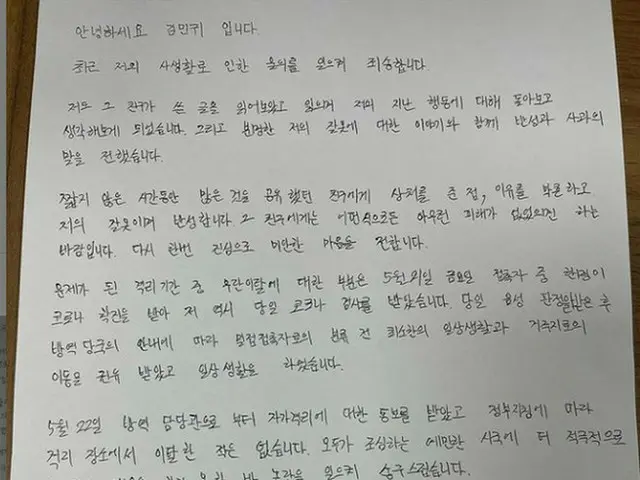 안녕하세요 김민귀 입니다.
최근 저의 사생활로 인한 물의를 일으켜 죄송합니다.
저도 그 친구가 쓴 글을 읽어보았고 읽으며 저의 지난 행동에 대해 돌아보고
생각해보게 되었습니다. 그리고 분명한 저의 잘못에 대한 이야기와 함께 반성과 사과의
말을 전했습니다.
짧지 않은 시간동안 많은 것을 공유했던 친구에게 상처를 준 점, 이유를 막론하고
저의 잘못이며 반성합니다. 그 친구에게는 어떤식으로든 아무런 피해가 없었으면 하는
바람입니다. 다시 한번 진심으로 미안한 마음을 전합니다.
문제가 된 격리기간 중 무단이탈에 대한 부분은 5월 21일 금요일 접촉자 중 한명이
코로나 확진을 받아 저 역시 당일 코로나 검사를 받았습니다. 당일 음성 판정을받은 후
방역 당국의 안내에 따라 밀접접촉자로의 분류 전 최소한의 일상생활과 거주지로의
이동을 권유 받았고 일상생활을 하였습니다.
5월 22일 방역 담당관으로 부터 자가격리에 대한 통보를 받았고 정부지침에 따라
격리 장소에서 이탈한 적은 없습니다. 모두가 조심하는 예민한 시국에 더 적극적으로
논란을 일으켜 송구스럽습니다.